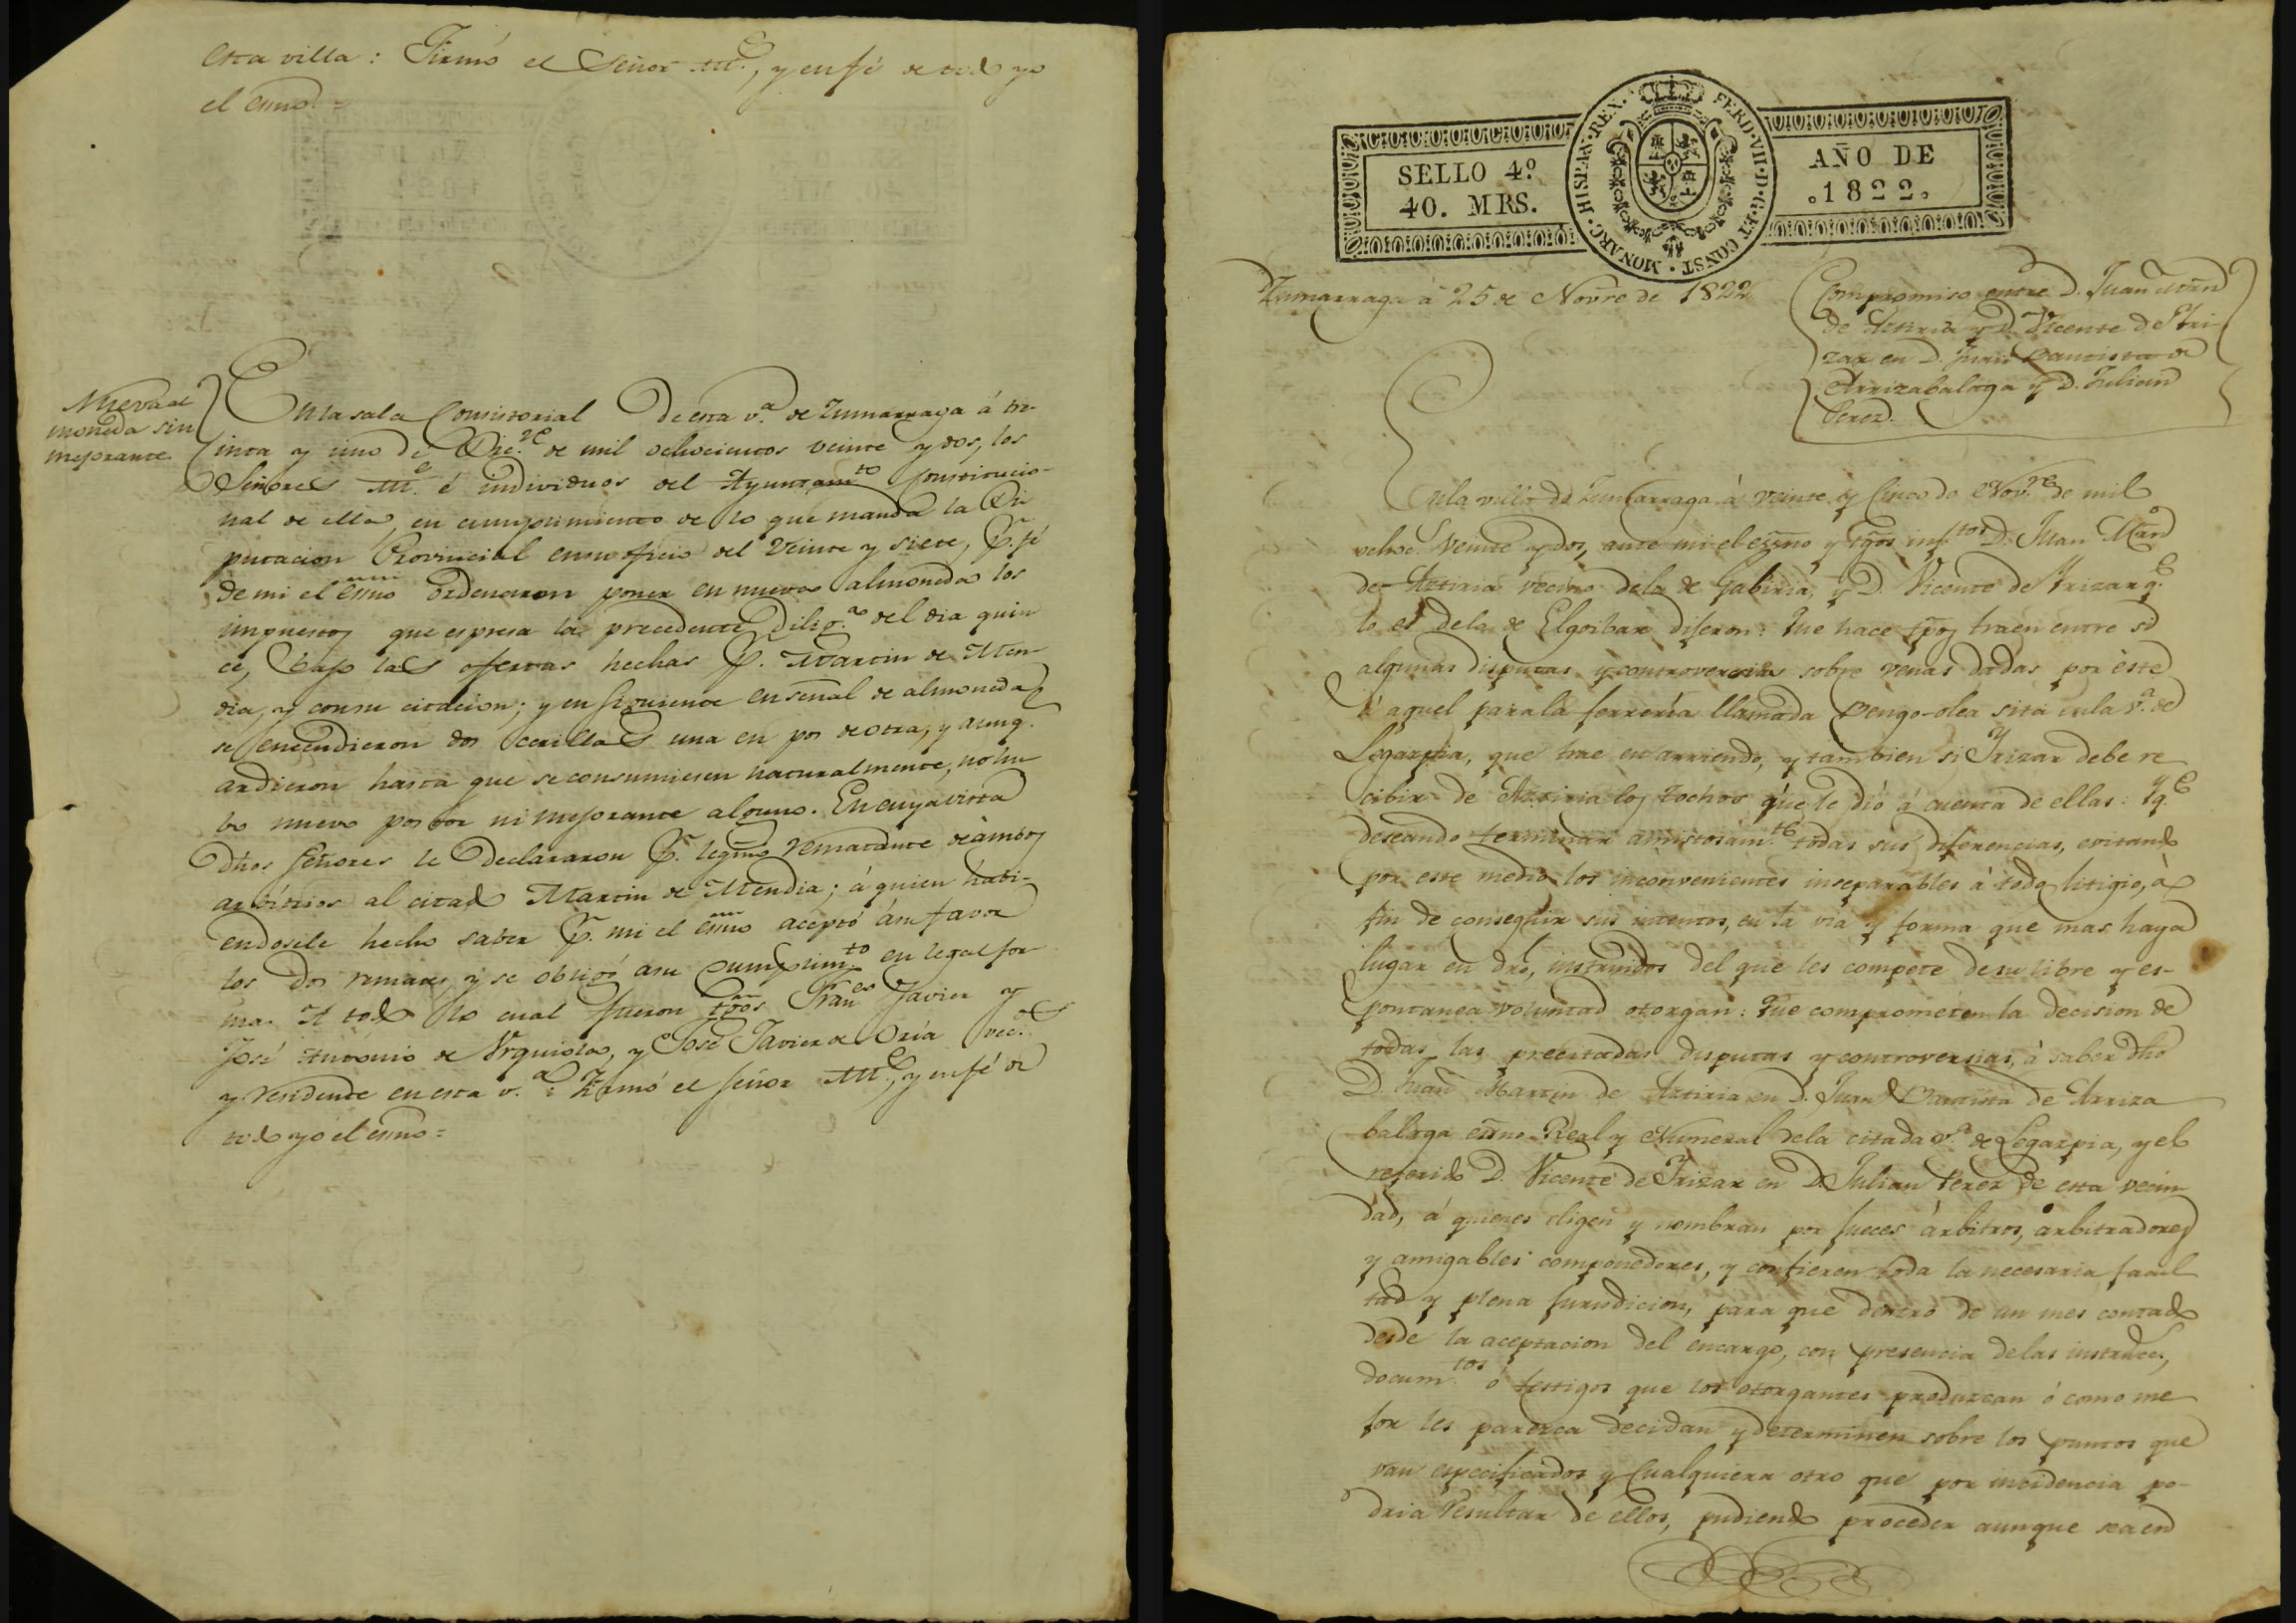 esta villa: Firmó el Señor Alc.e, y en fé de todo yo
el esno. =
Nueva al
moneda sin
mejorante
En la sala Consistorial De esta v.a de Zumarraga á tre-
inta y uno de Dic.re de mil ochocientos veinte y dos, los
Señores Alc.e é individuos del Ayuntam.to Constitucio-
nal de ella, en cumplimiento de lo que manda la Di
putacion Provincial en su oficio del Veinte y siete, P.r fé
de mi el esno ordenaron poner en nueva almoneda los
impuestos que espresa la precedente Dilig.a del dia quin
ce, bajo las ofertas hechas P.r Martin de Men
dia, y con su citacion; y en siguiente en señal de almoneda
se encendieron dos cerillas una en pos de otra, y aunq.
ardieron hasta que se consumiesen naturalmente, no hu
bo nuevo postor ni mejorante alguno. En cuya vista
dhos señores le Declararon P.r legmo rematante de ambos
arbitrios al citado Martin de Mendia; á quien habi-
endosele hecho saber P.r mi el esno aceptó á su favor
los Dos remates, y se obligó a su cumplim.to en legal for
ma. A todo lo cual fueron tgos Fran.co Javier y
José Antonio de Urquiola, y José Javier de Oria vec.os
y residente en esta v.a: Firmó el señor Alc.e, y en fé de
todo yo el esno =
SELLO 4º
40. MRS.
HISPAN·REX. FERD·VII·D·G·ET CONST·MONARC·
AÑO DE
1822
Zumarraga á 25 de Novre de 1822
Compromiso entre D. Juan Mrn
de Aztiria y D. Vicente de Iri-
zar en D. Juan Bautista de
Arrizabalaga y D. Julian
Perez.
En la villa de Zumarraga á veinte y Cinco de Nov.re de mil
ochoc.s Veinte y dos, ante mi el esno y tgos inf.tos D. Juan Mrn
de Aztiria vecino de la de Gabiria, y D. Vicente de Irizar q.e
lo es de la de Elgoibar dijeron: Que hace tpo traen entre si
algunas disputas y controversias sobre venas dadas por éste
á aquel para la ferrería llamada Bengo-olea sita en la v.a de
Legazpia, que trae en arriendo, y tambien si Irizar debe re
cibir de Aztiria los tochos que le dió á cuenta de ellas: Y q.e
deseando terminar amistosam.te todas sus diferencias, evitando
por este medio los inconvenientes inseparables á todo litigio, á
fin de conseguir sus intentos, en la via y forma que mas haya
lugar en dro, instruidos del que les compete de su libre y es-
pontanea voluntad otorgan: Que comprometen la decision de
todas las precitadas disputas y controversias, á saber dho
D. Juan Martin de Aztiria en D. Juan Bautista de Arriza
balaga esno Real y Numeral de la citada v.a de Legazpia, y el
referido D. Vicente de Irizar en D. Julian Perez de esta vecin
dad, á quienes eligen y nombran por Jueces árbitros, arbitradores
y amigables componedores, y confieren toda la necesaria facul
tad y plena jurisdicion, para que dentro de un mes contado
desde la aceptacion del encargo, con presencia de las instrucc.s,
docum.tos ó testigos que los otorgantes produzcan ó como me
jor les parezca decidan y determinen sobre los puntos que
van especificados y Cualquiera otro que por incidencia po-
dria resultar de ellos, pudiendo proceder aunque sea en